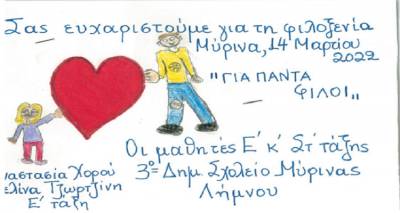 Σας ευχαριστούμε για τη φιλοξενία
Μύρινα, 14 Μαρτίου
2022
"ΓΙΑ ΠΑΝΤΑ
ΦΙΛΟΙ"
Οι μαθητές Ε΄ κ΄ ΣΤ΄ τάξης
3º Δημ. Σχολείο Μύρινας
Λήμνου
ναστασία Χορού
ελίνα Τζωρτζίνη
Ε΄ τάξη